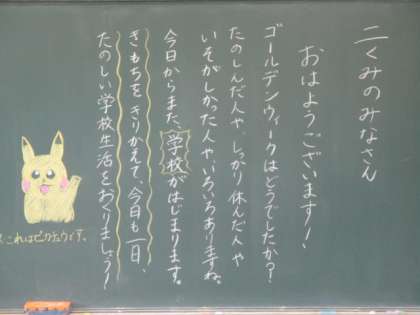 二くみのみなさん
おはようございます！
ゴールデンウィークはどうでしたか？
たのしんだ人や、しっかり休んだ人や
いそがしかった人や、いろいろありますね。
今日からまた、学校がはじまります。
きもちをきりかえて、今日も一日、
たのしい学校生活をおくりましょう！
これはピカチュウィデ。